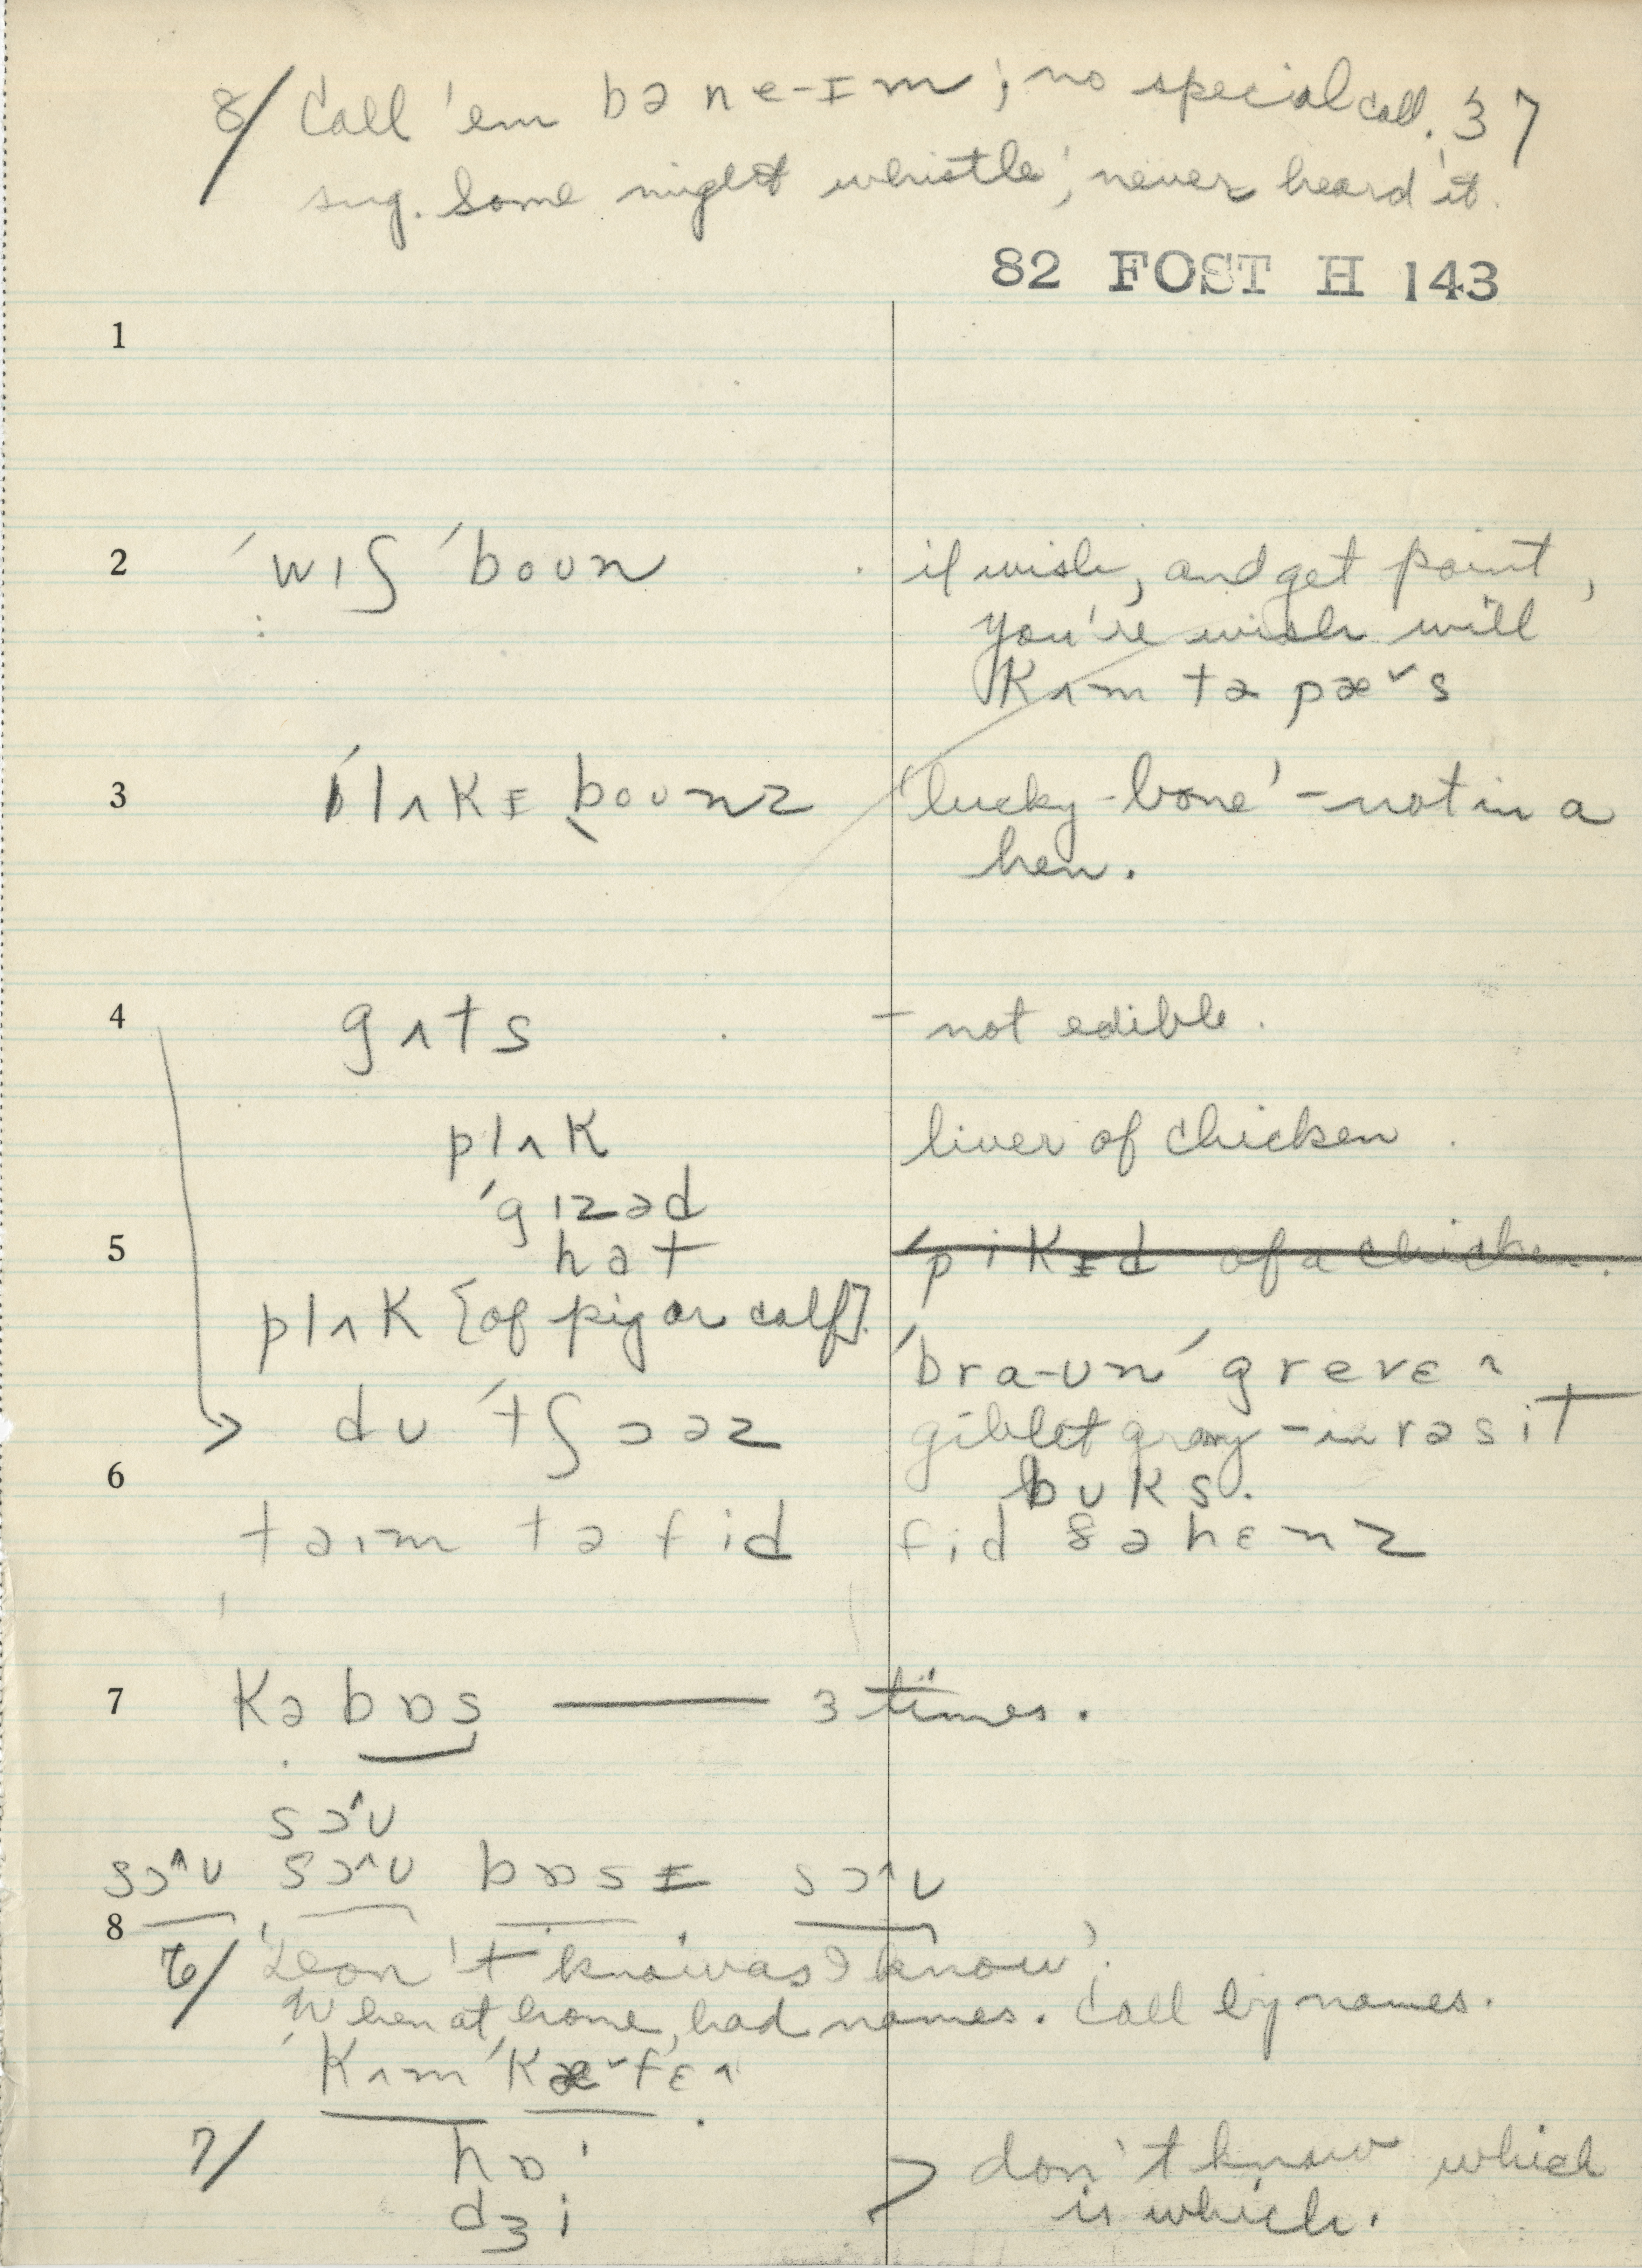 8/ Call 'em bə ne-ɪm; no special call. 37
sug. Some might whistle', never heard it.
82 FOST H 143
1
2 ´wɪʃ ´boun if wish, and get point,
you're wish will
Kʌm tə pæ˅s
3 ´lʌKɪ bounz 'lucky-bone' - not in a
hen.
4 gʌts - not edible.
plʌK liver of chicken.
´gɪzəd
5 hat ´piKɪd of a chicken.
plʌK [of pig or calf]. ´bra-ʊn ´greveɛ^
du ´tʃɔəz giblet gravy - in rəsiT
6 bʊKs.
taɪm tə fid fid ðə hɛnz
7 Kə bɒs —— 3 times.
sɔ^ʊ
sɔ^ʊ sɔ^ʊ bɒsɪ sɔ^ʊ
8
6/ 'Don't know as I know'.
When at home, had names. Call by names.
´Kʌm ´Kæ˅fɛ^.
7/ hɒ' > don't know which
dʒi is which.